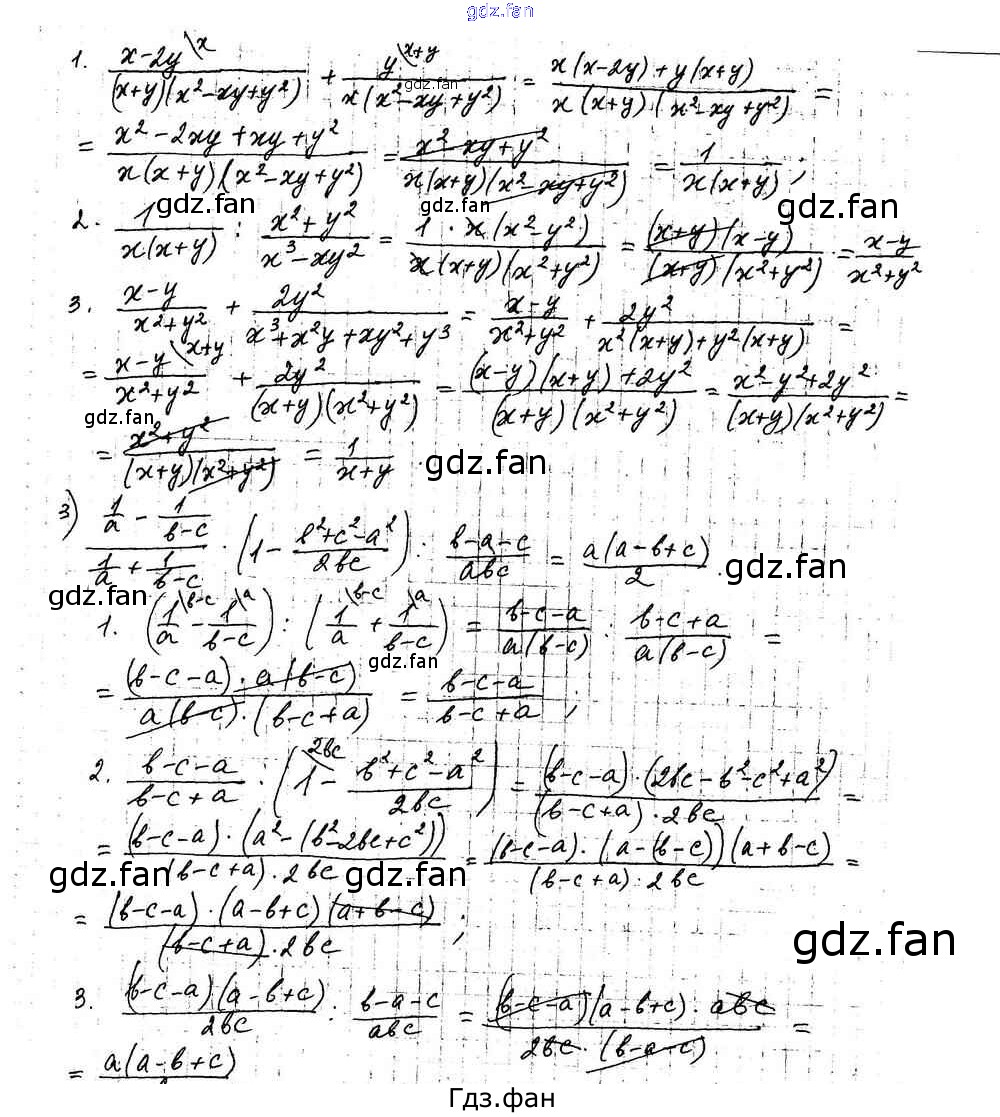 gdz.fan
1. \frac{x-2y^{\backslash x}}{(x+y)(x²-xy+y²)} + \frac{y^{\backslash x+y}}{x(x²-xy+y²)} = \frac{x(x-2y)+y(x+y)}{x(x+y)(x²-xy+y²)} =
gdz.fan
= \frac{x²-2xy+xy+y²}{x(x+y)(x²-xy+y²)} = \frac{x²-xy+y²}{x(x+y)(x²-xy+y²)} = \frac{1}{x(x+y)};
gdz.fan gdz.fan gdz.fan
2. \frac{1}{x(x+y)} : \frac{x²+y²}{x³-xy²} = \frac{1·x(x²-y²)}{x(x+y)(x²+y²)} = \frac{(x+y)(x-y)}{(x+y)(x²+y²)} = \frac{x-y}{x²+y²}
3. \frac{x-y}{x²+y²} + \frac{2y²}{x³+x²y+xy²+y³} = \frac{x-y}{x²+y²} + \frac{2y²}{x²(x+y)+y²(x+y)} =
= \frac{x-y^{\backslash x+y}}{x²+y²} + \frac{2y²}{(x+y)(x²+y²)} = \frac{(x-y)(x+y)+2y²}{(x+y)(x²+y²)} = \frac{x²-y²+2y²}{(x+y)(x²+y²)} =
gdz.fan
= \frac{x²+y²}{(x+y)(x²+y²)} = \frac{1}{x+y}.
gdz.fan
3) \frac{\frac{1}{a} - \frac{1}{b-c}}{\frac{1}{a} + \frac{1}{b-c}} : (1 - \frac{b²+c²-a²}{2bc}) : \frac{b-a-c}{abc} = \frac{a(a-b+c)}{2}.
gdz.fan
gdz.fan
1. (\frac{1}{a}^{\backslash b-c} - \frac{1}{b-c}^{\backslash a}) : (\frac{1}{a}^{\backslash b-c} + \frac{1}{b-c}^{\backslash a}) = \frac{b-c-a}{a(b-c)} : \frac{b-c+a}{a(b-c)} =
gdz.fan
= \frac{(b-c-a)·a(b-c)}{a(b-c)·(b-c+a)} = \frac{b-c-a}{b-c+a};
2. \frac{b-c-a}{b-c+a} : (1^{\backslash 2bc} - \frac{b²+c²-a²}{2bc}) = \frac{(b-c-a)·(2bc-b²-c²+a²)}{(b-c+a)·2bc} =
= \frac{(b-c-a)·(a²-(b²-2bc+c²))}{(b-c+a)·2bc} = \frac{(b-c-a)·(a-(b-c))(a+b-c)}{(b-c+a)·2bc} =
gdz.fan gdz.fan
= \frac{(b-c-a)·(a-b+c)(a+b-c)}{(b-c+a)·2bc};
gdz.fan
3. \frac{(b-c-a)(a-b+c)}{2bc} : \frac{b-a-c}{abc} = \frac{(b-c-a)(a-b+c)·abc}{2bc·(b-a-c)} =
= \frac{a(a-b+c)}{2}
Гдз.фан